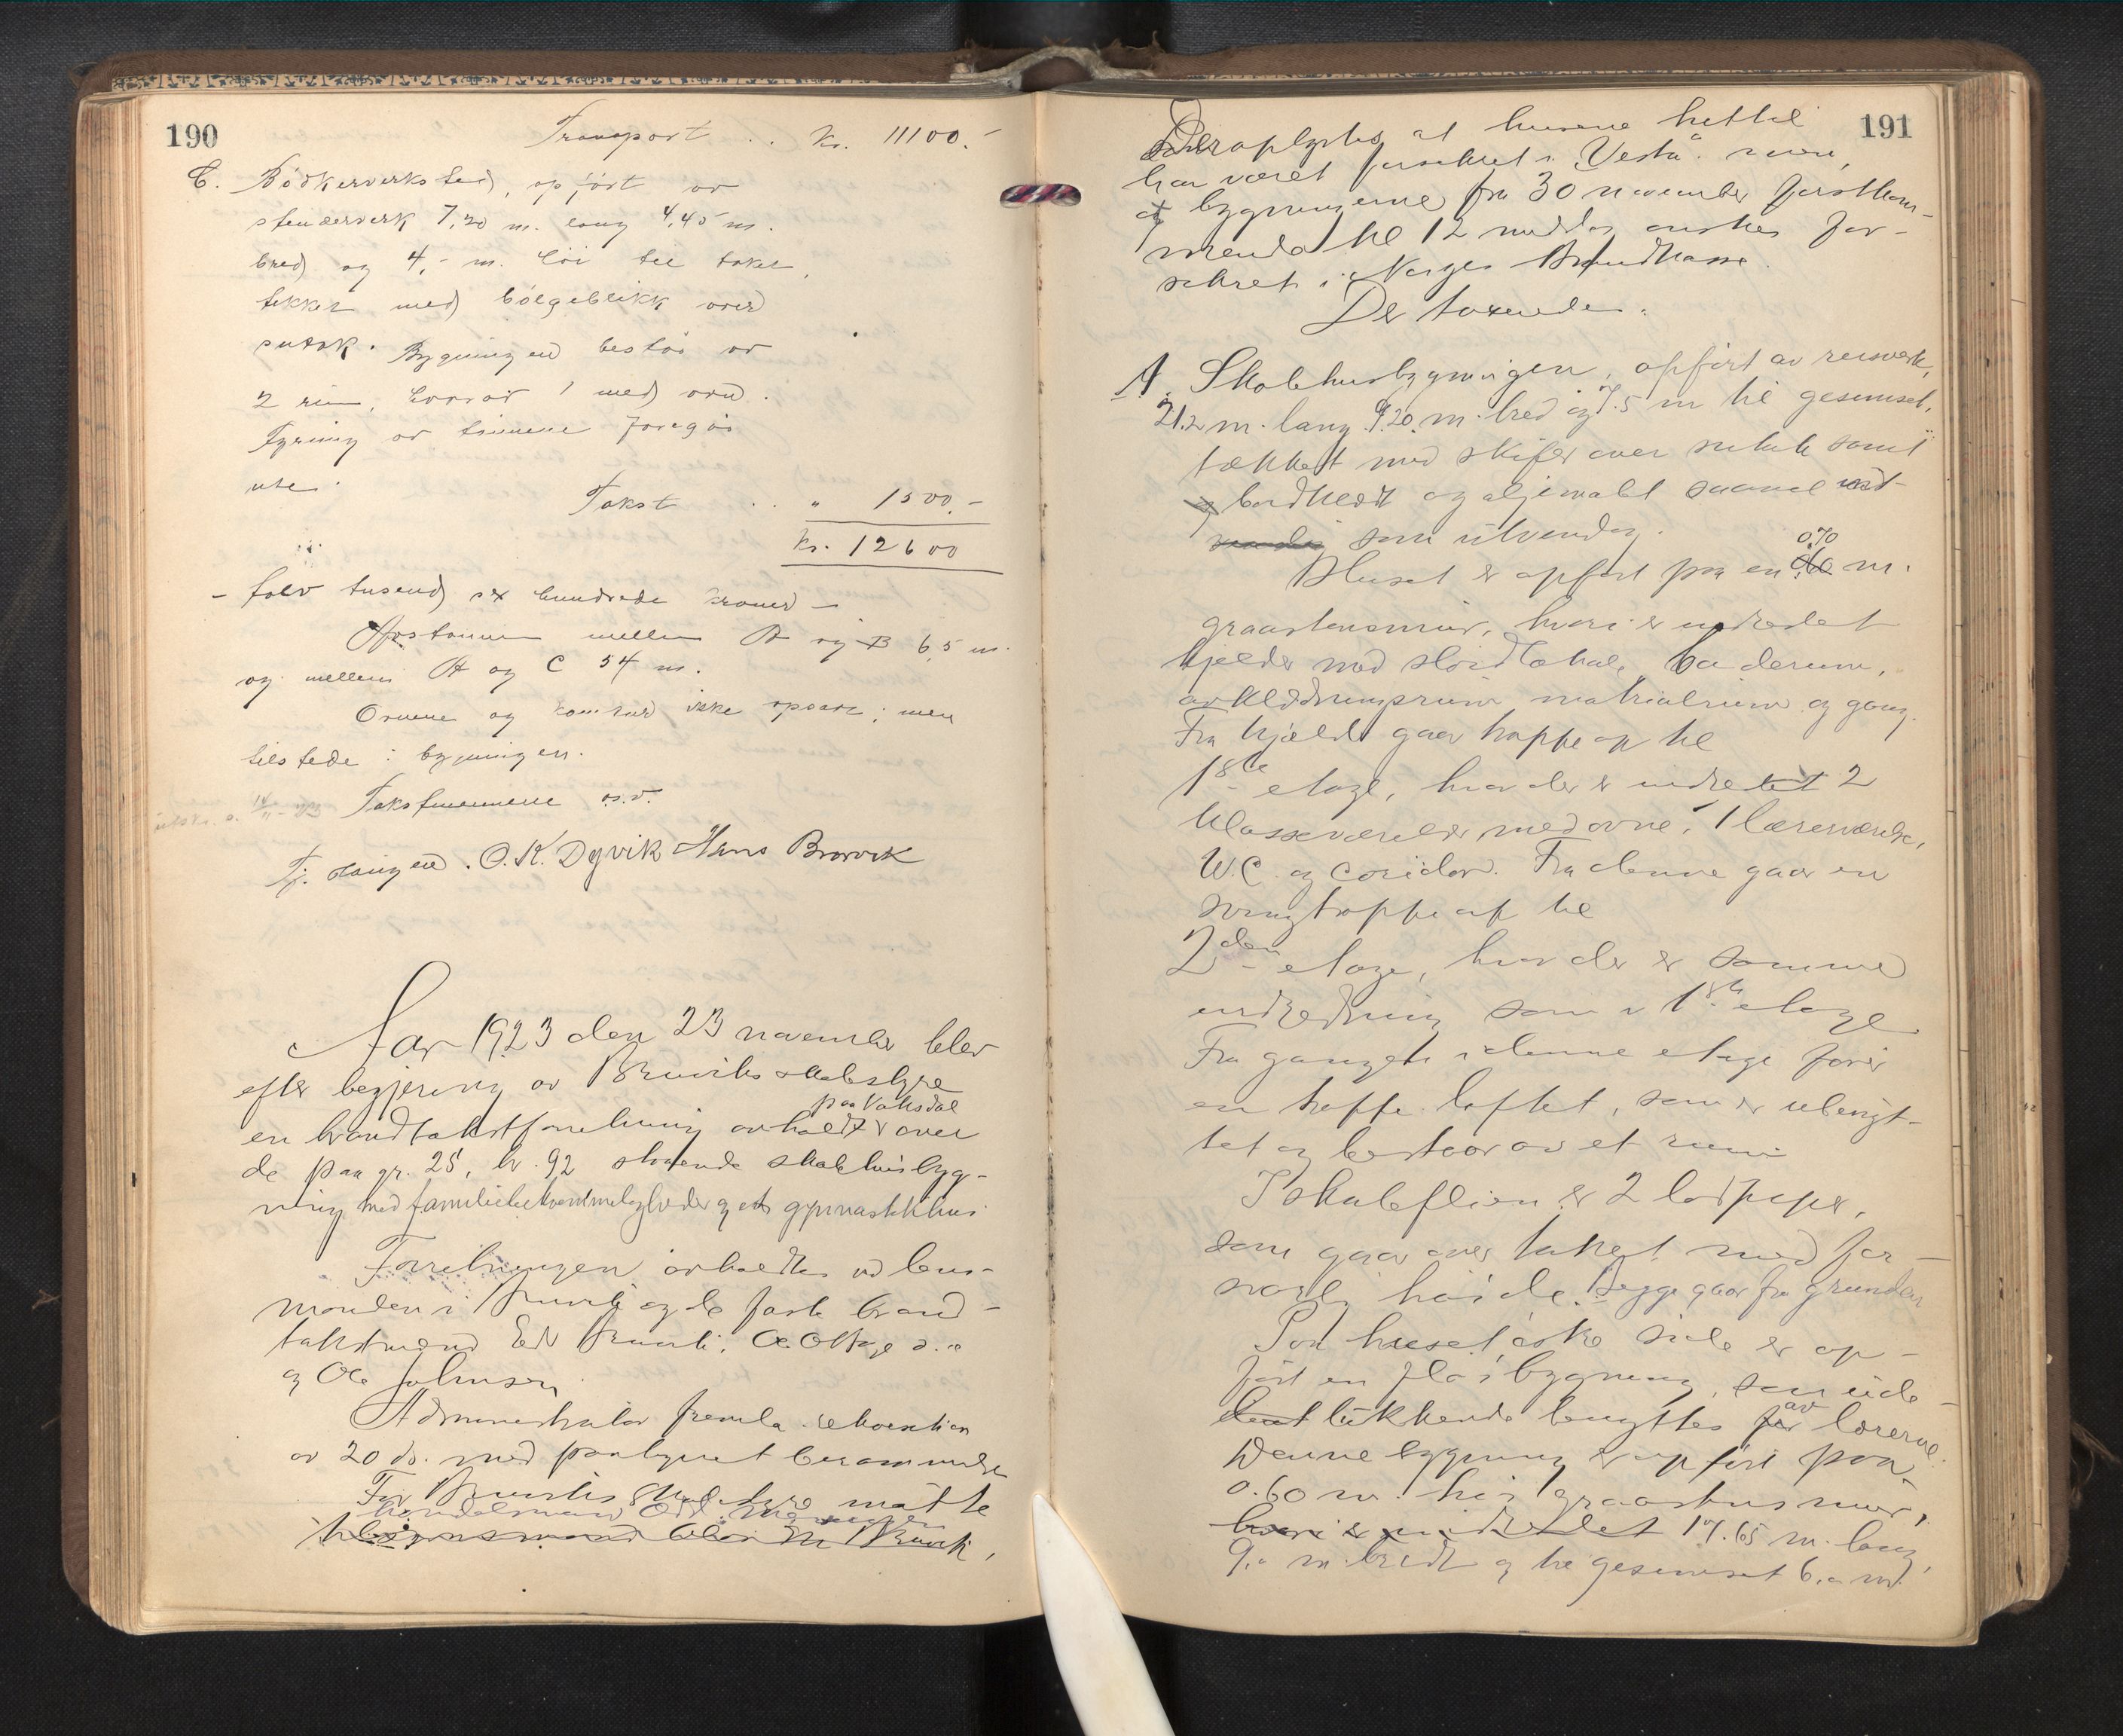 190
Transport . . kr. 11100.-
C. Bödkerverksted, opført av
stenderverk 7,20 m. lang 4,45 m.
bred og 4,- m. høi til taket,
tekket med bølgeblikk over
sutak. Bygningen består av
2 rum, hvorav 1 med ovn.
Fyring av tønnene foregår
ute.
Takst . . " 1500.-
kr. 12600
- tolv tusend sex hundrede kroner -
Avstanden mellem A og B 6,5 m.
og mellem A og C 54 m.
Ovnene og komfur ikke opsatt; men
tilstede i bygningen.
Takstmennene o.s.v.
O. K. Dyvik Hans Brorvik
Aar 1923 den 23 november blev
efter begjering av Bruviks skolestyre
paa Vaksdal
en brandtakstforretning avholdt over
de paa gr. 25, br. 92 staaende skolehusbyg-
ning med familiebekvemmeligheder og et gymnastikhus
Forretningen avholdtes ved lens-
manden i Bruvik og de faste brand-
takstmænd Edv Bruvik,
og Ole Johnsen
Administrator fremla rekvisition
av 20 ds. med paategnet berammelse
For Bruviks skolestyre møtte
handelsmand
191
Der oplystes at husene hittil
har været forsikret i "Vesta" men,
at bygningerne fra 30 november førstkom-
mende kl 12 middag ønskes for-
sikret i Norges Brandkasse.
De taxerede:
A. Skolehusbygningen, opført av reisverk,
21.2 m. lang 9.20 m. bred og 7.5 m til gesimset,
tækket med skifer over sutak samt
bordklædt og oljemalt saavel ind-
som utvendig.
0.70
Huset er opført paa en m.
graastensmur, hvori er indredet
kjelder med sløidlokale, baderum,
avklædningsrum matrialrum og gang.
Fra kjælder gaar trappe op til
1ste etage, hvor der er indredet 2
klasseværelser med ovne, 1 lærerværelse,
W.C. og coridor. Fra denne gaar en
svingtrappe op til
2den etage, hvor der er samme
indredning som i 1ste etage
Fra gangen i denne etage fører
en trappe loftet, som er ubenyt-
tet og bestaar av et rum
I skolefløien er 2 lodpiper,
som gaar over taket med for-
svarlig høide. Begge gaar fra grunden
Paa husets østre side er op-
ført en fløibygning, som ude-
av
lukkende benyttes for lærerne.
Denne bygning er opført paa
0.60 m. høi graastensmur,
hvori er indredet 17.65 m. lang,
9.0 m. bredt og til gesimset 6.0 m.